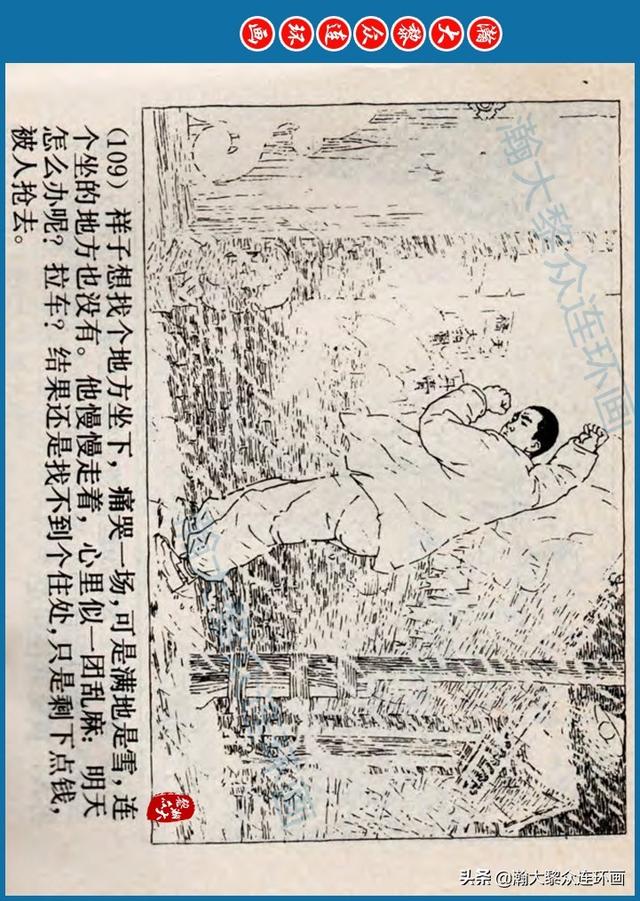 瀚大黎众连环画
(109) 祥子想找个地方坐下，痛哭一场,可是满地是雪，连
个坐的地方也没有。他慢慢走着，心里似一团乱麻：明天
怎么办呢？拉车？结果还是找不到个住处,只是剩下点钱，
被人抢去。
瀚大黎众连环画
瀚大黎众连环画
头条 @瀚大黎众连环画